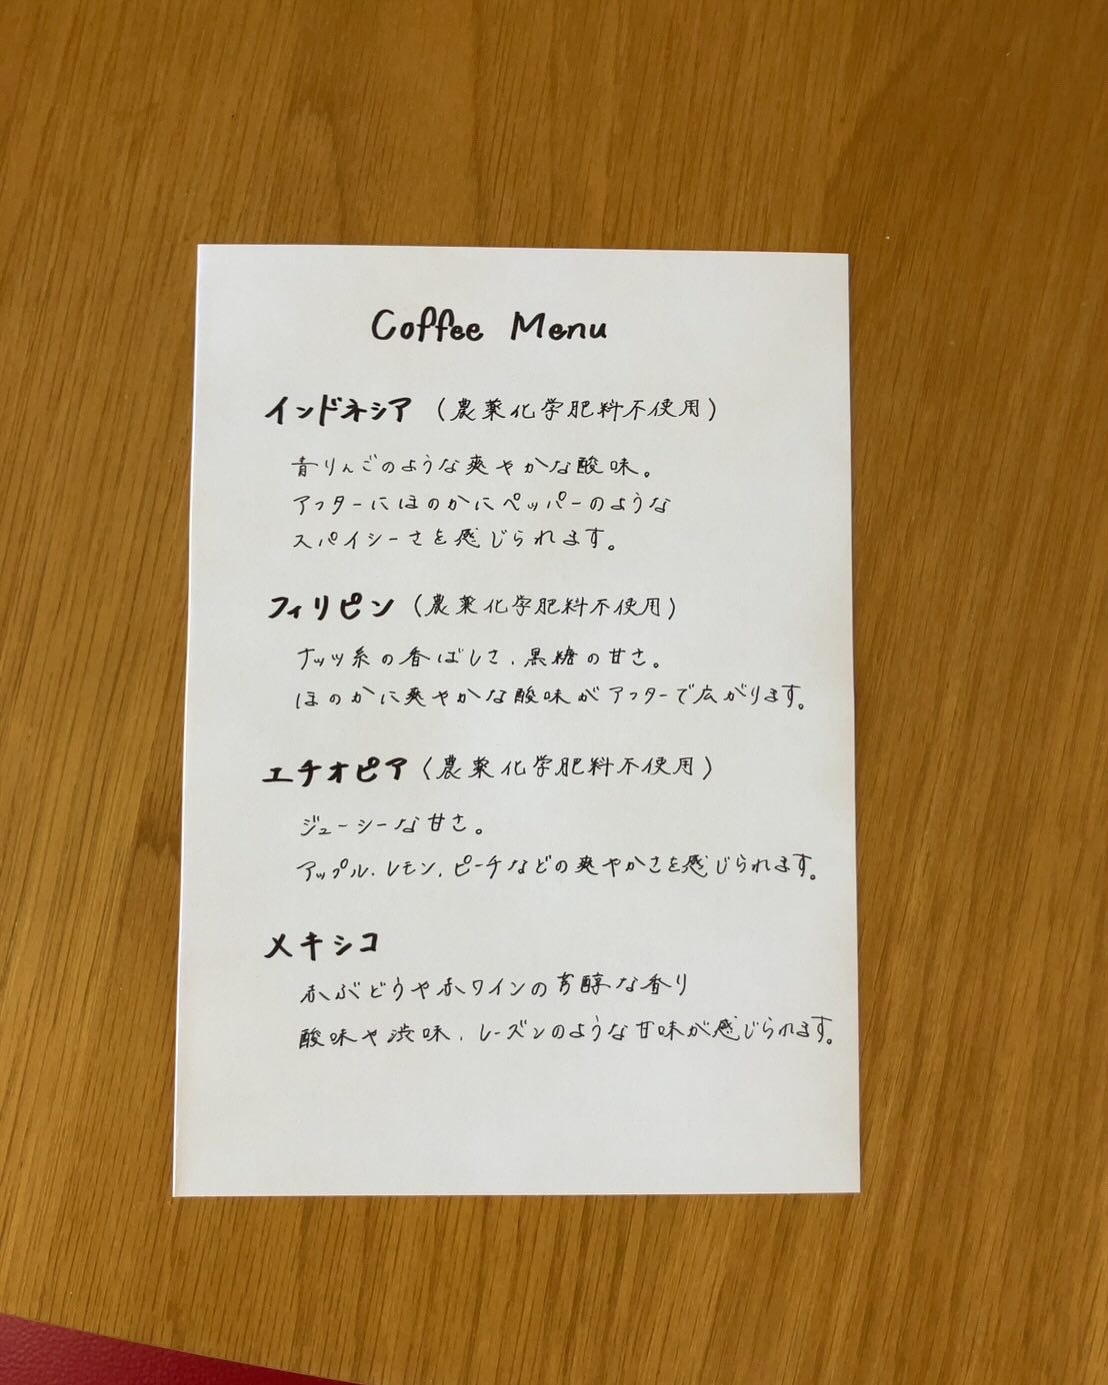 Coffee Menu
インドネシア (農薬化学肥料不使用)
青りんごのような爽やかな酸味。
アフターにほのかにペッパーのような
スパイシーさを感じられます。
フィリピン (農薬化学肥料不使用)
ナッツ系の香ばしさ、黒糖の甘さ。
ほのかに爽やかな酸味がアフターで広がります。
エチオピア (農薬化学肥料不使用)
ジューシーな甘さ。
アップル、レモン、ピーチなどの爽やかさを感じられます。
メキシコ
赤ぶどうや赤ワインの芳醇な香り
酸味や渋味、レーズンのような甘味が感じられます。